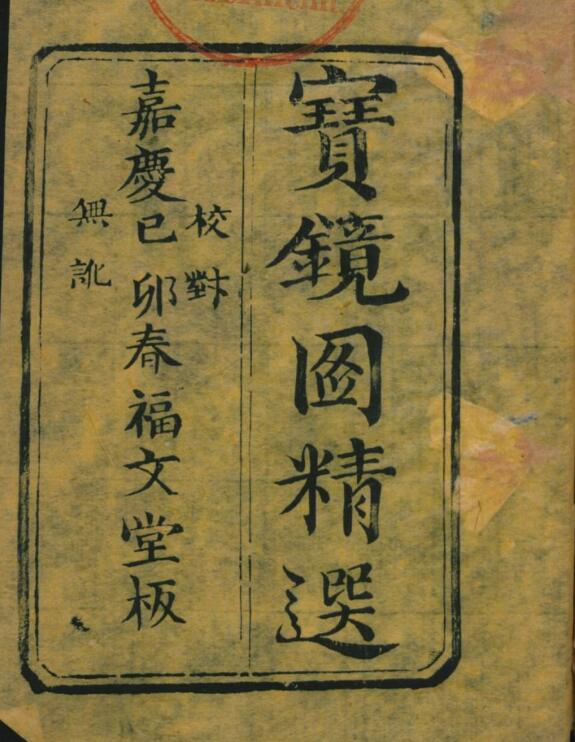 寶鏡圖精選
校對
嘉慶己卯春福文堂板
無訛